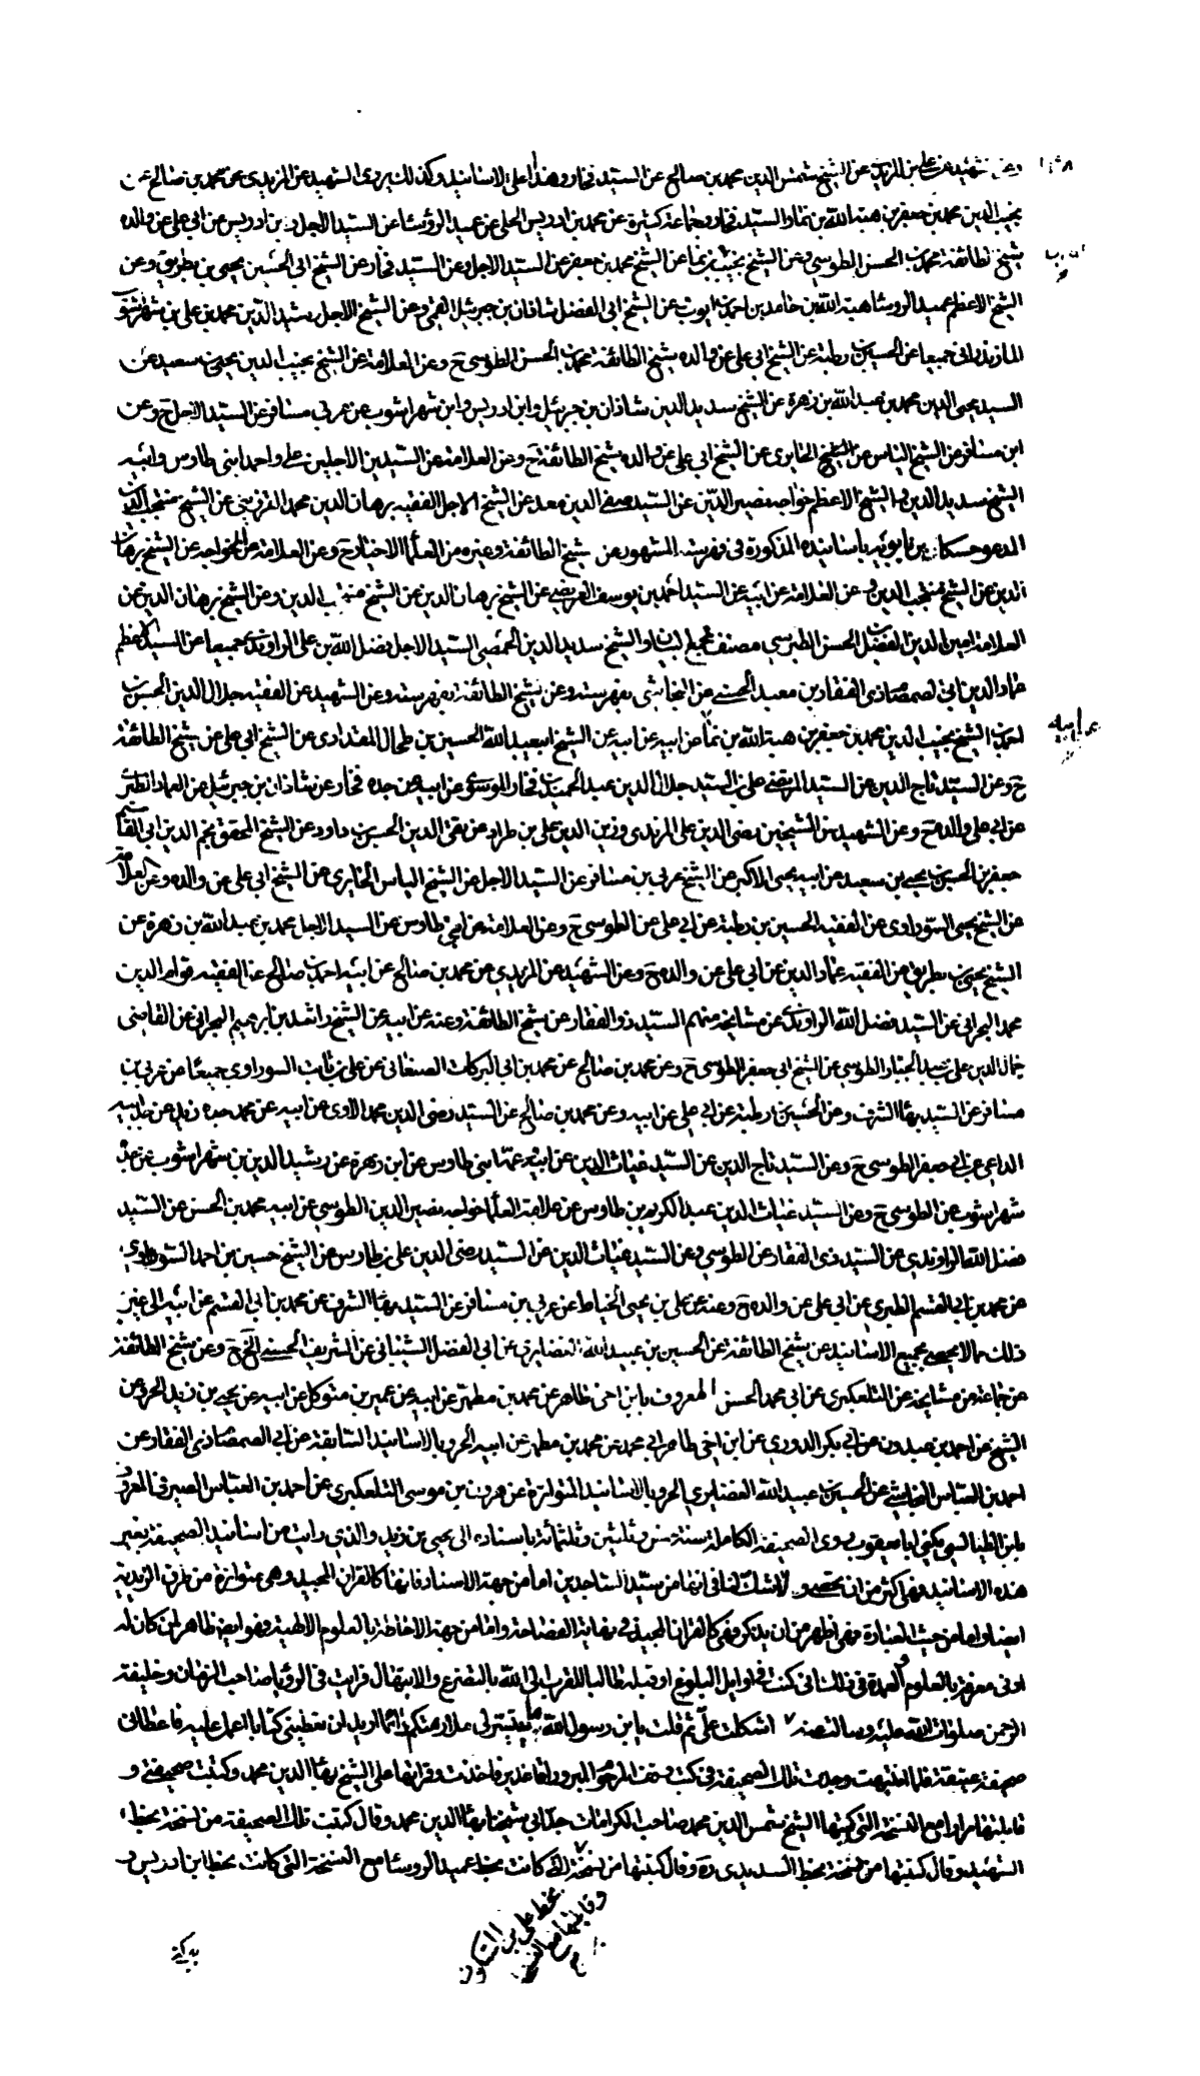 وعن الشهيد عن علي بن المزيدي عن الشيخ شمس الدين محمد بن صالح عن السيد فخار وهذا أعلى الاسانيد وكذلك يروى الشهيد عن المزيدي عن محمد بن صالح عن
نجيب الدين محمد بن جعفر بن هبة الله بن نما والسيد فخار وجماعة كثيرة عن محمد بن ادريس الحلي عن عميد الرؤساء عن السيد الاجل وبن ادريس عن ابي علي عن والده
شيخ الطائفة محمد بن الحسن الطوسي وعن الشيخ نجيب بن نما عن الشيخ محمد بن جعفر عن السيد الاجل وعن السيد فخار عن الشيخ ابي الحسين يحيى بن بطريق وعن
الشيخ الاعظم عميد الرؤساء هبة الله بن حامد بن احمد بن ايوب عن الشيخ ابي الفضل شاذان بن جبرئيل القمي وعن الشيخ الاجل رشيد الدين محمد بن علي بن شهراشوب
المازندراني جميعا عن الحسين بن رطبة عن الشيخ ابي علي عن والده شيخ الطائفة محمد بن الحسن الطوسي ح وعن العلامة عن الشيخ نجيب الدين يحيى بن سعيد عن
السيد يحيى الدين محمد بن عبد الله بن زهرة عن الشيخ سديد الدين شاذان بن جبرئيل وابن ادريس وابن شهراشوب عن عربي بن مسافر عن السيد الاجل ح وعن
ابن مسافر عن الشيخ الياس عن الشيخ الحايري عن الشيخ ابي علي عن والده شيخ الطائفة ح وعن العلامة عن السيدين الاجلين علي واحمد ابني طاوس وابيه
الشيخ سديد الدين والشيخ الاعظم خواجه نصير الدين عن السيد صفي الدين معد عن الشيخ الاجل الفقيه برهان الدين محمد القزويني عن الشيخ منتجب الدين
المدعو حسكا بن بابويه باسانيده المذكورة في فهرسته المشهور عن شيخ الطائفة وغيره من العلماء الاخيار ح وعن العلامة عن الخواجه عن الشيخ برهان
الدين عن الشيخ منتجب الدين وعن العلامة عن ابيه عن السيد احمد بن يوسف العريضي عن الشيخ برهان الدين عن الشيخ منتجب الدين وعن الشيخ برهان الدين عن
العلامة امين الدين الفضل بن الحسن الطبرسي مصنف مجمع البيان والشيخ سديد الدين الحمصي السيد الاجل فضل الله بن علي الراوندي جميعا عن السيد الاعظم
عماد الدين ابي الصمصام ذي الفقار بن معبد الحسني عن النجاشي بفهرسته وعن شيخ الطائفة بفهرسته وعن الشهيد عن الفقيه جلال الدين الحسن بن
احمد بن الشيخ نجيب الدين محمد بن جعفر بن هبة الله بن نما عن ابيه عن ابيه عن الشيخ ابي عبد الله الحسين بن طحال المقدادي عن الشيخ ابي علي عن شيخ الطائفة
عن ابيه
ح وعن السيد تاج الدين عن السيد المرتضى علي بن السيد جلال الدين عبد الحميد بن فخار الموسوي عن ابيه عن جده فخار عن شاذان بن جبرئيل عن العماد الطبري
عن ابي علي والده ح وعن الشهيد عن الشيخين رضي الدين علي المزيدي وزين الدين علي بن طراد عن تقي الدين الحسن بن داود عن الشيخ المحقق نجم الدين ابي القاسم
جعفر بن الحسن بن يحيى بن سعيد عن ابيه يحيى الاكبر عن الشيخ عربي بن مسافر عن السيد الاجل عن الشيخ الياس الحايري عن الشيخ ابي علي عن والده وعن العلامة
عن الشيخ يحيى السوراوي عن الفقيه الحسين بن رطبة عن ابي علي عن الطوسي ح وعن العلامة عن ابني طاوس عن السيد الاجل محمد بن عبد الله بن زهرة عن
الشيخ يحيى بن بطريق عن الفقيه عماد الدين عن ابي علي عن والده ح وعن الشهيد عن المزيدي عن محمد بن صالح عن ابيه احمد بن صالح عن الفقيه قوام الدين
محمد البحراني عن السيد فضل الله الراوندي عن مشايخه منهم السيد ذو الفقار عن شيخ الطائفة وعنه عن ابيه عن الشيخ راشد بن ابرهيم البحراني عن القاضي
جمال الدين علي بن عبد الجبار الطوسي عن الشيخ ابي جعفر الطوسي ح وعن محمد بن صالح عن محمد بن ابي البركات الصنعاني عن علي بن ثابت السوراوي جميعا عن عربي بن
مسافر عن السيد بهاء الشرف وعن الحسين بن رطبة عن ابي علي عن ابيه وعن محمد بن صالح عن السيد رضي الدين محمد الاوي عن ابيه عن محمد جده زيد عن جد ابيه
الداعي عن ابي جعفر الطوسي ح وعن السيد تاج الدين عن السيد غياث الدين عن ابيه وعمه ابني طاوس عن ابن زهرة عن رشيد الدين بن شهراشوب عن جده
شهراشوب عن الطوسي ح وعن السيد غياث الدين عبد الكريم بن طاوس عن علامة العلماء خواجه نصير الدين الطوسي عن ابيه محمد بن الحسن عن السيد
فضل الله الراوندي عن السيد ذي الفقار عن الطوسي وعن السيد غياث الدين عن السيد رضي الدين علي بن طاوس عن الشيخ حسين بن احمد السوراوي
عن محمد بن ابي القسم الطبري عن ابي علي عن والده ح وعنه عن علي بن يحيى الخياط عن عربي بن مسافر عن السيد بهاء الشرف عن محمد بن ابي القسم عن ابيه الى غير
ذلك مما لا يحصى بجميع الاسانيد عن شيخ الطائفة عن الحسين بن عبيد الله الغضايري عن ابي الفضل الشيباني عن الشريف الحسني الخ ح وعن شيخ الطائفة
عن جماعة من مشايخه عن التلعكبري عن ابي محمد الحسن المعروف بابن اخي طاهر عن محمد بن مطهر عن ابيه عن عمير بن متوكل عن ابيه عن يحيى بن زيد الحر وعن
الشيخ عن احمد بن عبدون عن ابي بكر الدوري عن ابن اخي طاهر ابي محمد عن محمد بن مطهر عن ابيه الحر وبالاسانيد السابقة عن ابي الصمصام ذي الفقار عن
احمد بن العباس النجاشي عن الحسين بن عبيد الله الغضايري الحر وبالاسانيد المتواترة عن هرون بن موسى التلعكبري عن احمد بن العباس الصيرفي المعروف
بابن الطيالسي يكنى ابا يعقوب روى الصحيفة الكاملة سنة خمس وثلثين وثلثمائة باسناده الى يحيى بن زيد والذي رايت من اسانيد الصحيفة بغير
هذه الاسانيد فهي اكثر من ان تحصى ولا شك لنا في انها من سيد الساجدين اما من جهة الاسناد فانها كالقران المجيد وهي متواترة من طرق الزيدية
ايضا واما من حيث العبارة فهي اظهر من ان يذكر فهي كالقران المجيد في نهاية الفصاحة واما من جهة الاحاطة بالعلوم الالهية فهو ايضا ظاهر لمن كان له
ادنى معرفة بالعلوم والعمدة في ذلك اني كنت في اوايل البلوغ او قبله طالبا للقرب الى الله بالتضرع والابتهال فرايت في الرؤيا صاحب الزمان وخليفة
الرحمن صلوات الله عليه وسالت عنه اشكلت علي ثم قلت يا بن رسول الله ما يتيسر لي ملازمتكم دائما اريد ان تعطيني كتابا اعمل عليه فاعطاني
صحيفة عتيقة فلما انتبهت وجدت تلك الصحيفة في كتب وقف المرحوم المبرور اقا غدير فاخذت وقراتها على الشيخ بهاء الدين محمد وكتبت صحيفتي و
قابلتها مرارا مع النسخة التي كتبها الشيخ شمس الدين محمد صاحب الكرامات جد ابي شيخنا بهاء الدين محمد وقال كتبت تلك الصحيفة من نسخة بخط
الشهيد وقال كتبتها من نسخة بخط السديدي ره وقال كتبتها من نسخة التي كانت بخط عميد الرؤساء مع النسخة التي كانت بخط ابن ادريس و
وقابلتها مع النسخة
بخط علي بن السكون